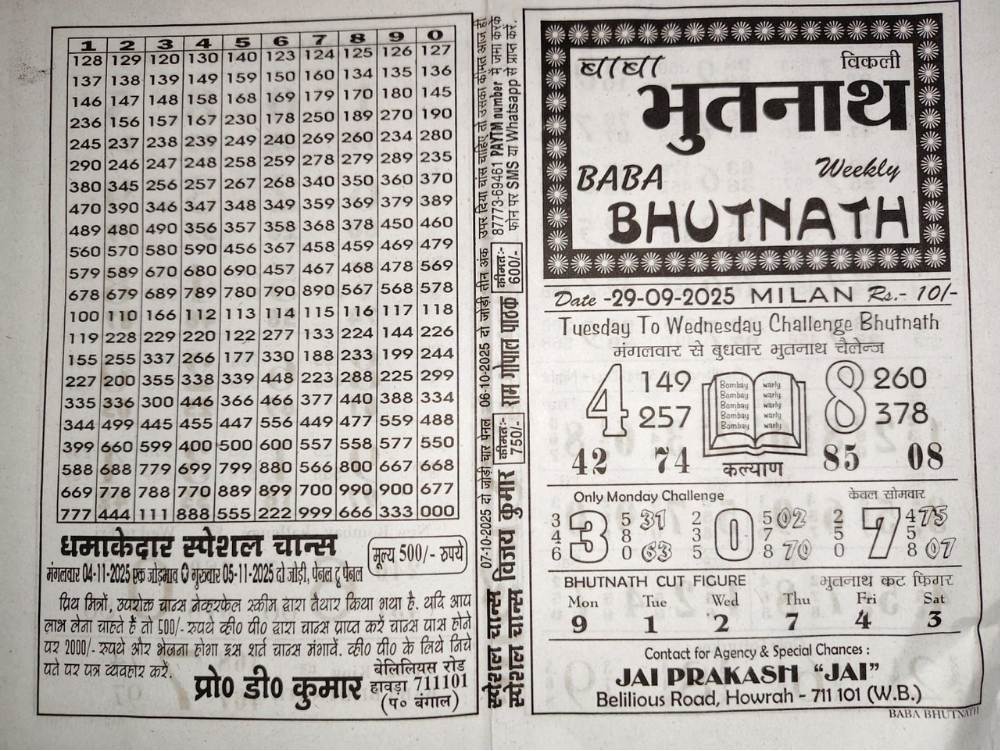 1 2 3 4 5 6 7 8 9 0
128 129 120 130 140 123 124 125 126 127
137 138 139 149 159 150 160 134 135 136
146 147 148 158 168 169 179 170 180 145
236 156 157 167 230 178 250 189 270 190
245 237 238 239 249 240 269 260 234 280
290 246 247 248 258 259 278 279 289 235
380 345 256 257 267 268 340 350 360 370
470 390 346 347 348 349 359 369 379 389
489 480 490 356 357 358 368 378 450 460
560 570 580 590 456 367 458 459 469 479
579 589 670 680 690 457 467 468 478 569
678 679 689 789 780 790 890 567 568 578
100 110 166 112 113 114 115 116 117 118
119 228 229 220 122 277 133 224 144 226
155 255 337 266 177 330 188 233 199 244
227 200 355 338 339 448 223 288 225 299
335 336 300 446 366 466 377 440 388 334
344 499 445 455 447 556 449 477 559 488
399 660 599 400 500 600 557 558 577 550
588 688 779 699 799 880 566 800 667 668
669 778 788 770 889 899 700 990 900 677
777 444 111 888 555 222 999 666 333 000
धमाकेदार स्पेशल चान्स
मूल्य 500/- रुपये
मंगलवार 04-11-2025 एक जोड़माव गुरुवार 05-11-2025 दो जोड़ी, पेनल टू पेनल
प्रिय मित्रों, उपरोक्त चान्स मेकरफेल स्कीम द्वारा तैयार किया गया है. यदि आप
लाभ लेना चाहते हैं तो 500/- रुपये व्ही० पी० द्वारा चान्स प्राप्त करें चान्स पास होने
पर 2000/- रुपये और भेजना होगा इस शर्त चान्स मंगावें. व्ही० पी० के लिये निचे
पते पर पत्र व्यवहार करें.
प्रो० डी० कुमार
बेलिलियस रोड
हावड़ा 711101
(प० बंगाल)
उपर दिया चांस चाहिए तो उसका कीमत आज ही
87773-69461 PAYTM number में जमा करके
फोन पर SMS या Whatsapp से प्राप्त करें.
स्पेशल चान्स विजय कुमार
07-10-2025 दो जोड़ी चार पेनल
कीमत:-
750/-
स्पेशल चान्स
राम गोपाल पाठक
06-10-2025 दो जोड़ी तीन अंक
कीमत:-
600/-
बाबा
विकली
भुतनाथ
BABA
Weekly
BHUTNATH
Date -29-09-2025 MILAN Rs.- 10/-
Tuesday To Wednesday Challenge Bhutnath
मंगलवार से बुधवार भुतनाथ चैलेन्ज
4 149 8 260
257 378
Bombay warly
Bombay warly
Bombay warly
Bombay warly
Bombay warly
42 74 कल्याण 85 08
Only Monday Challenge
केवल सोमवार
3 5 31 2 5 02 2 4 75
4 3 8 3 0 7 5 7 5
6 0 63 5 8 70 0 8 07
BHUTNATH CUT FIGURE
भुतनाथ कट फिगर
Mon Tue Wed Thu Fri Sat
9 1 2 7 4 3
Contact for Agency & Special Chances :
JAI PRAKASH "JAI"
Belilious Road, Howrah - 711 101 (W.B.)
BABA BHUTNATH